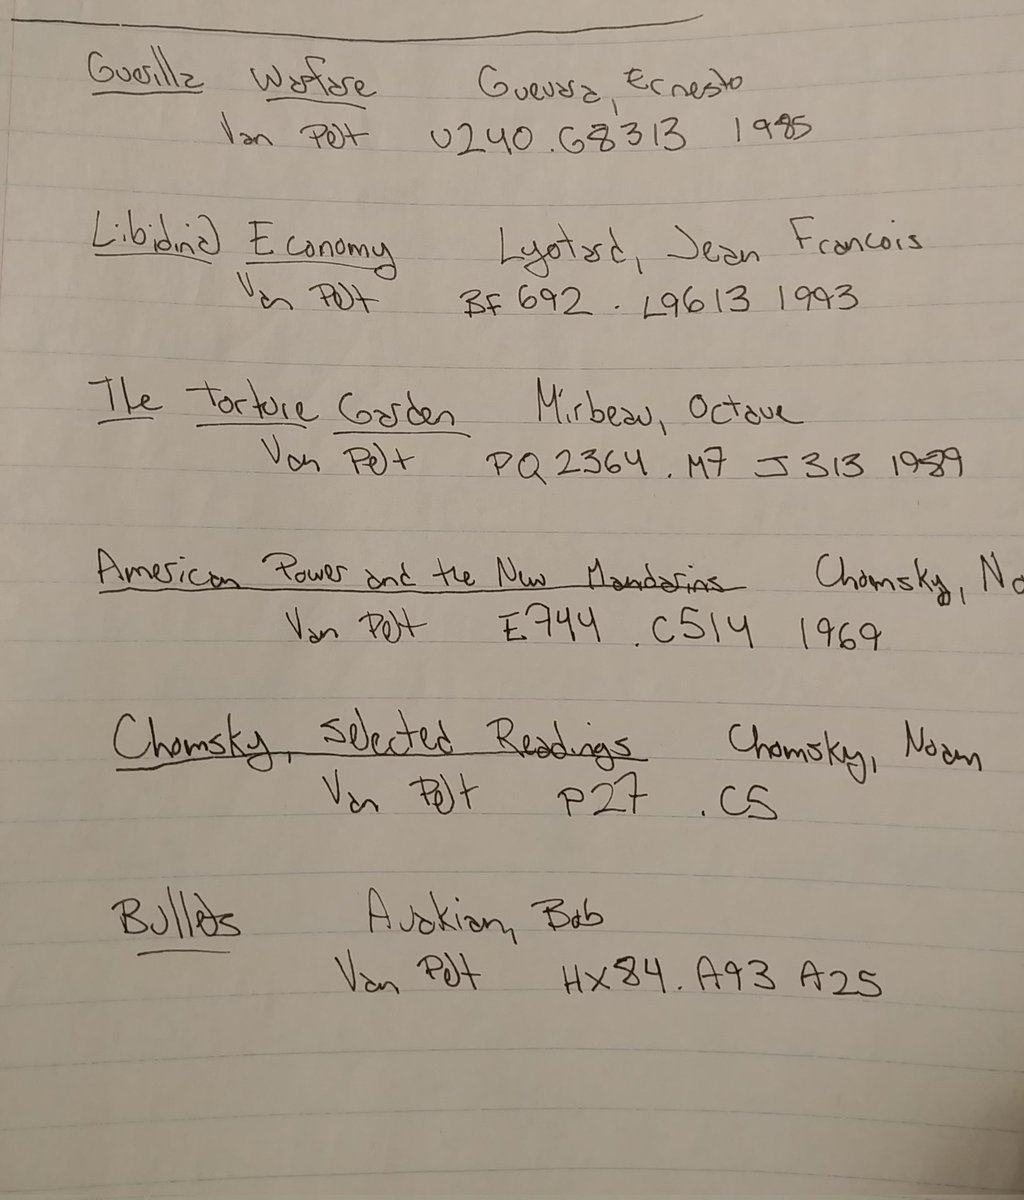 Guerilla Warfare Guevara, Ernesto
Van Pelt U240 .G8313 1985
Libidinal Economy Lyotard, Jean Francois
Van Pelt BF 692 . L9613 1993
The Torture Garden Mirbeau, Octave
Van Pelt PQ 2364 . M7 J313 1989
American Power and the New Mandarins Chomsky, No
Van Pelt E744 .C514 1969
Chomsky, Selected Readings Chomsky, Noam
Van Pelt P27 .C5
Bullets Avakian, Bob
Van Pelt HX84. A93 A25